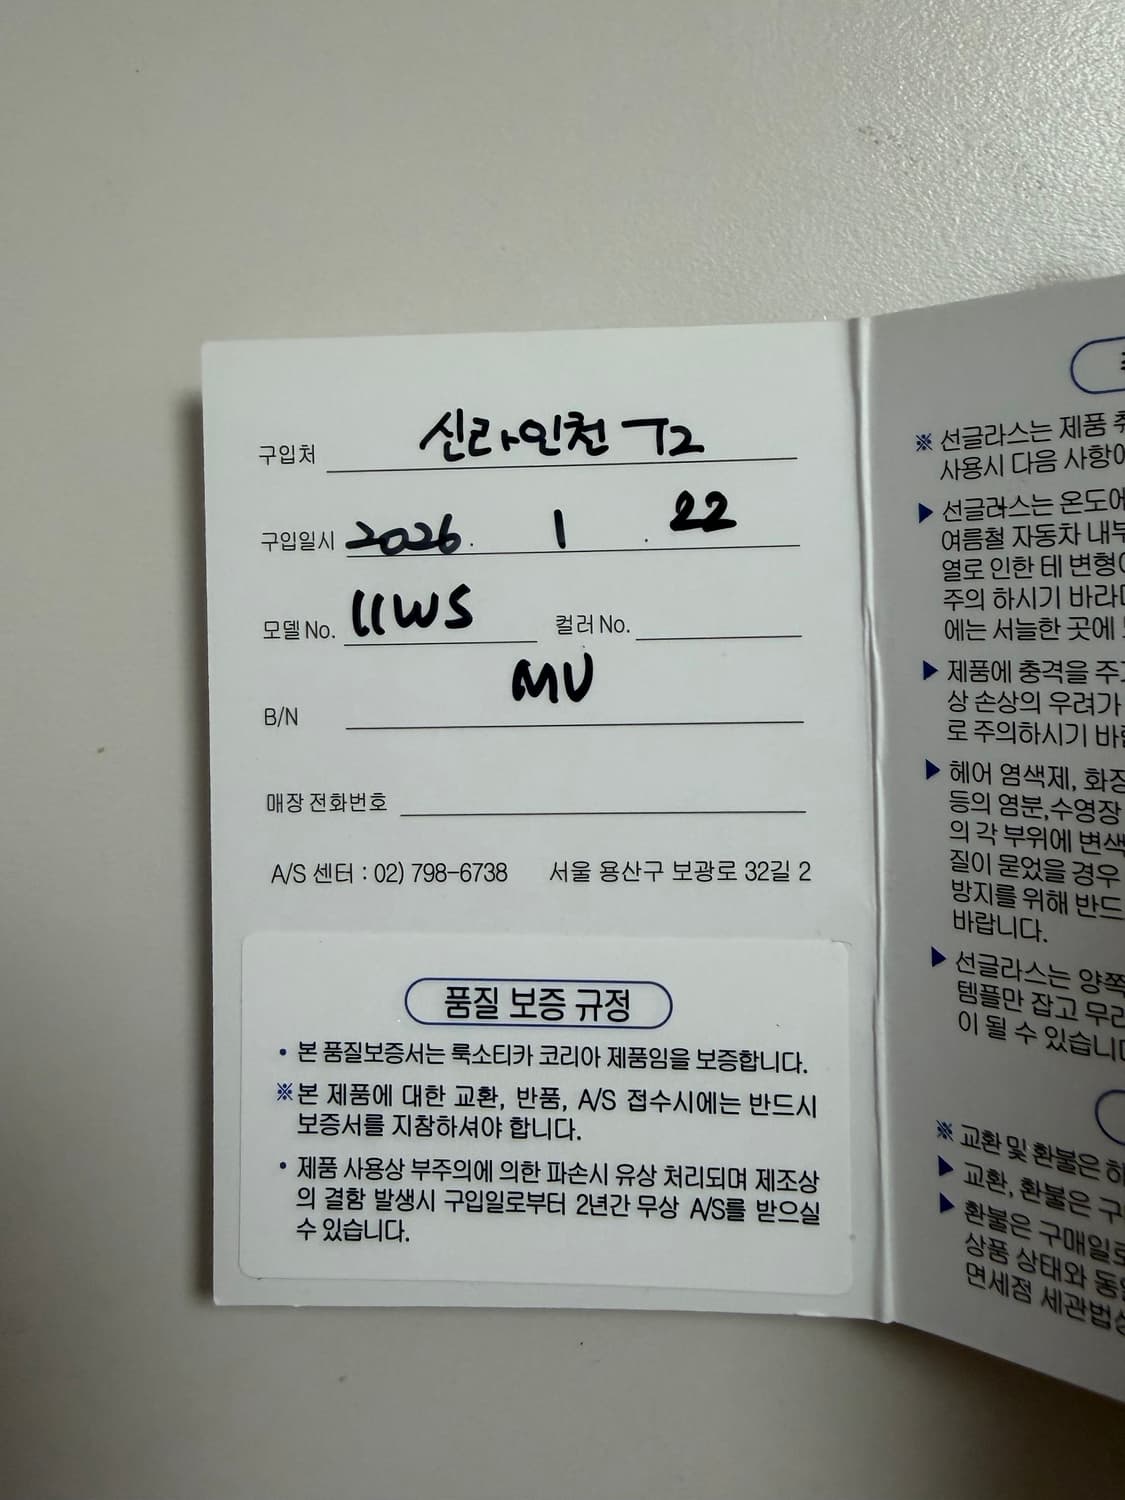 구입처 신라인천 T2
구입일시 2026. 1 . 22
모델 No. 11WS 컬러 No.
MU
B/N
매장 전화번호
A/S 센터 : 02) 798-6738 서울 용산구 보광로 32길 2
품질 보증 규정
• 본 품질보증서는 룩소티카 코리아 제품임을 보증합니다.
※본 제품에 대한 교환, 반품, A/S 접수시에는 반드시
보증서를 지참하셔야 합니다.
• 제품 사용상 부주의에 의한 파손시 유상 처리되며 제조상
의 결함 발생시 구입일로부터 2년간 무상 A/S를 받으실
수 있습니다.
※ 선글라스는 제품
사용시 다음
▶ 선글라스는
여름철 자동차 내부
열로 인한 테
주의 하시기
에는 서늘한 곳에
▶ 제품에 충격을
상 손상의 우려가
로 주의하시기
▶ 헤어 염색제,
등의 염분,수영장
의 각 부위에
질이 묻었을 경우
방지를 위해
바랍니다.
▶ 선글라스는
템플만 잡고
이 될 수
※ 교환 및 환불은
▶ 교환, 환불은
▶ 환불은
상품 상태와
면세점